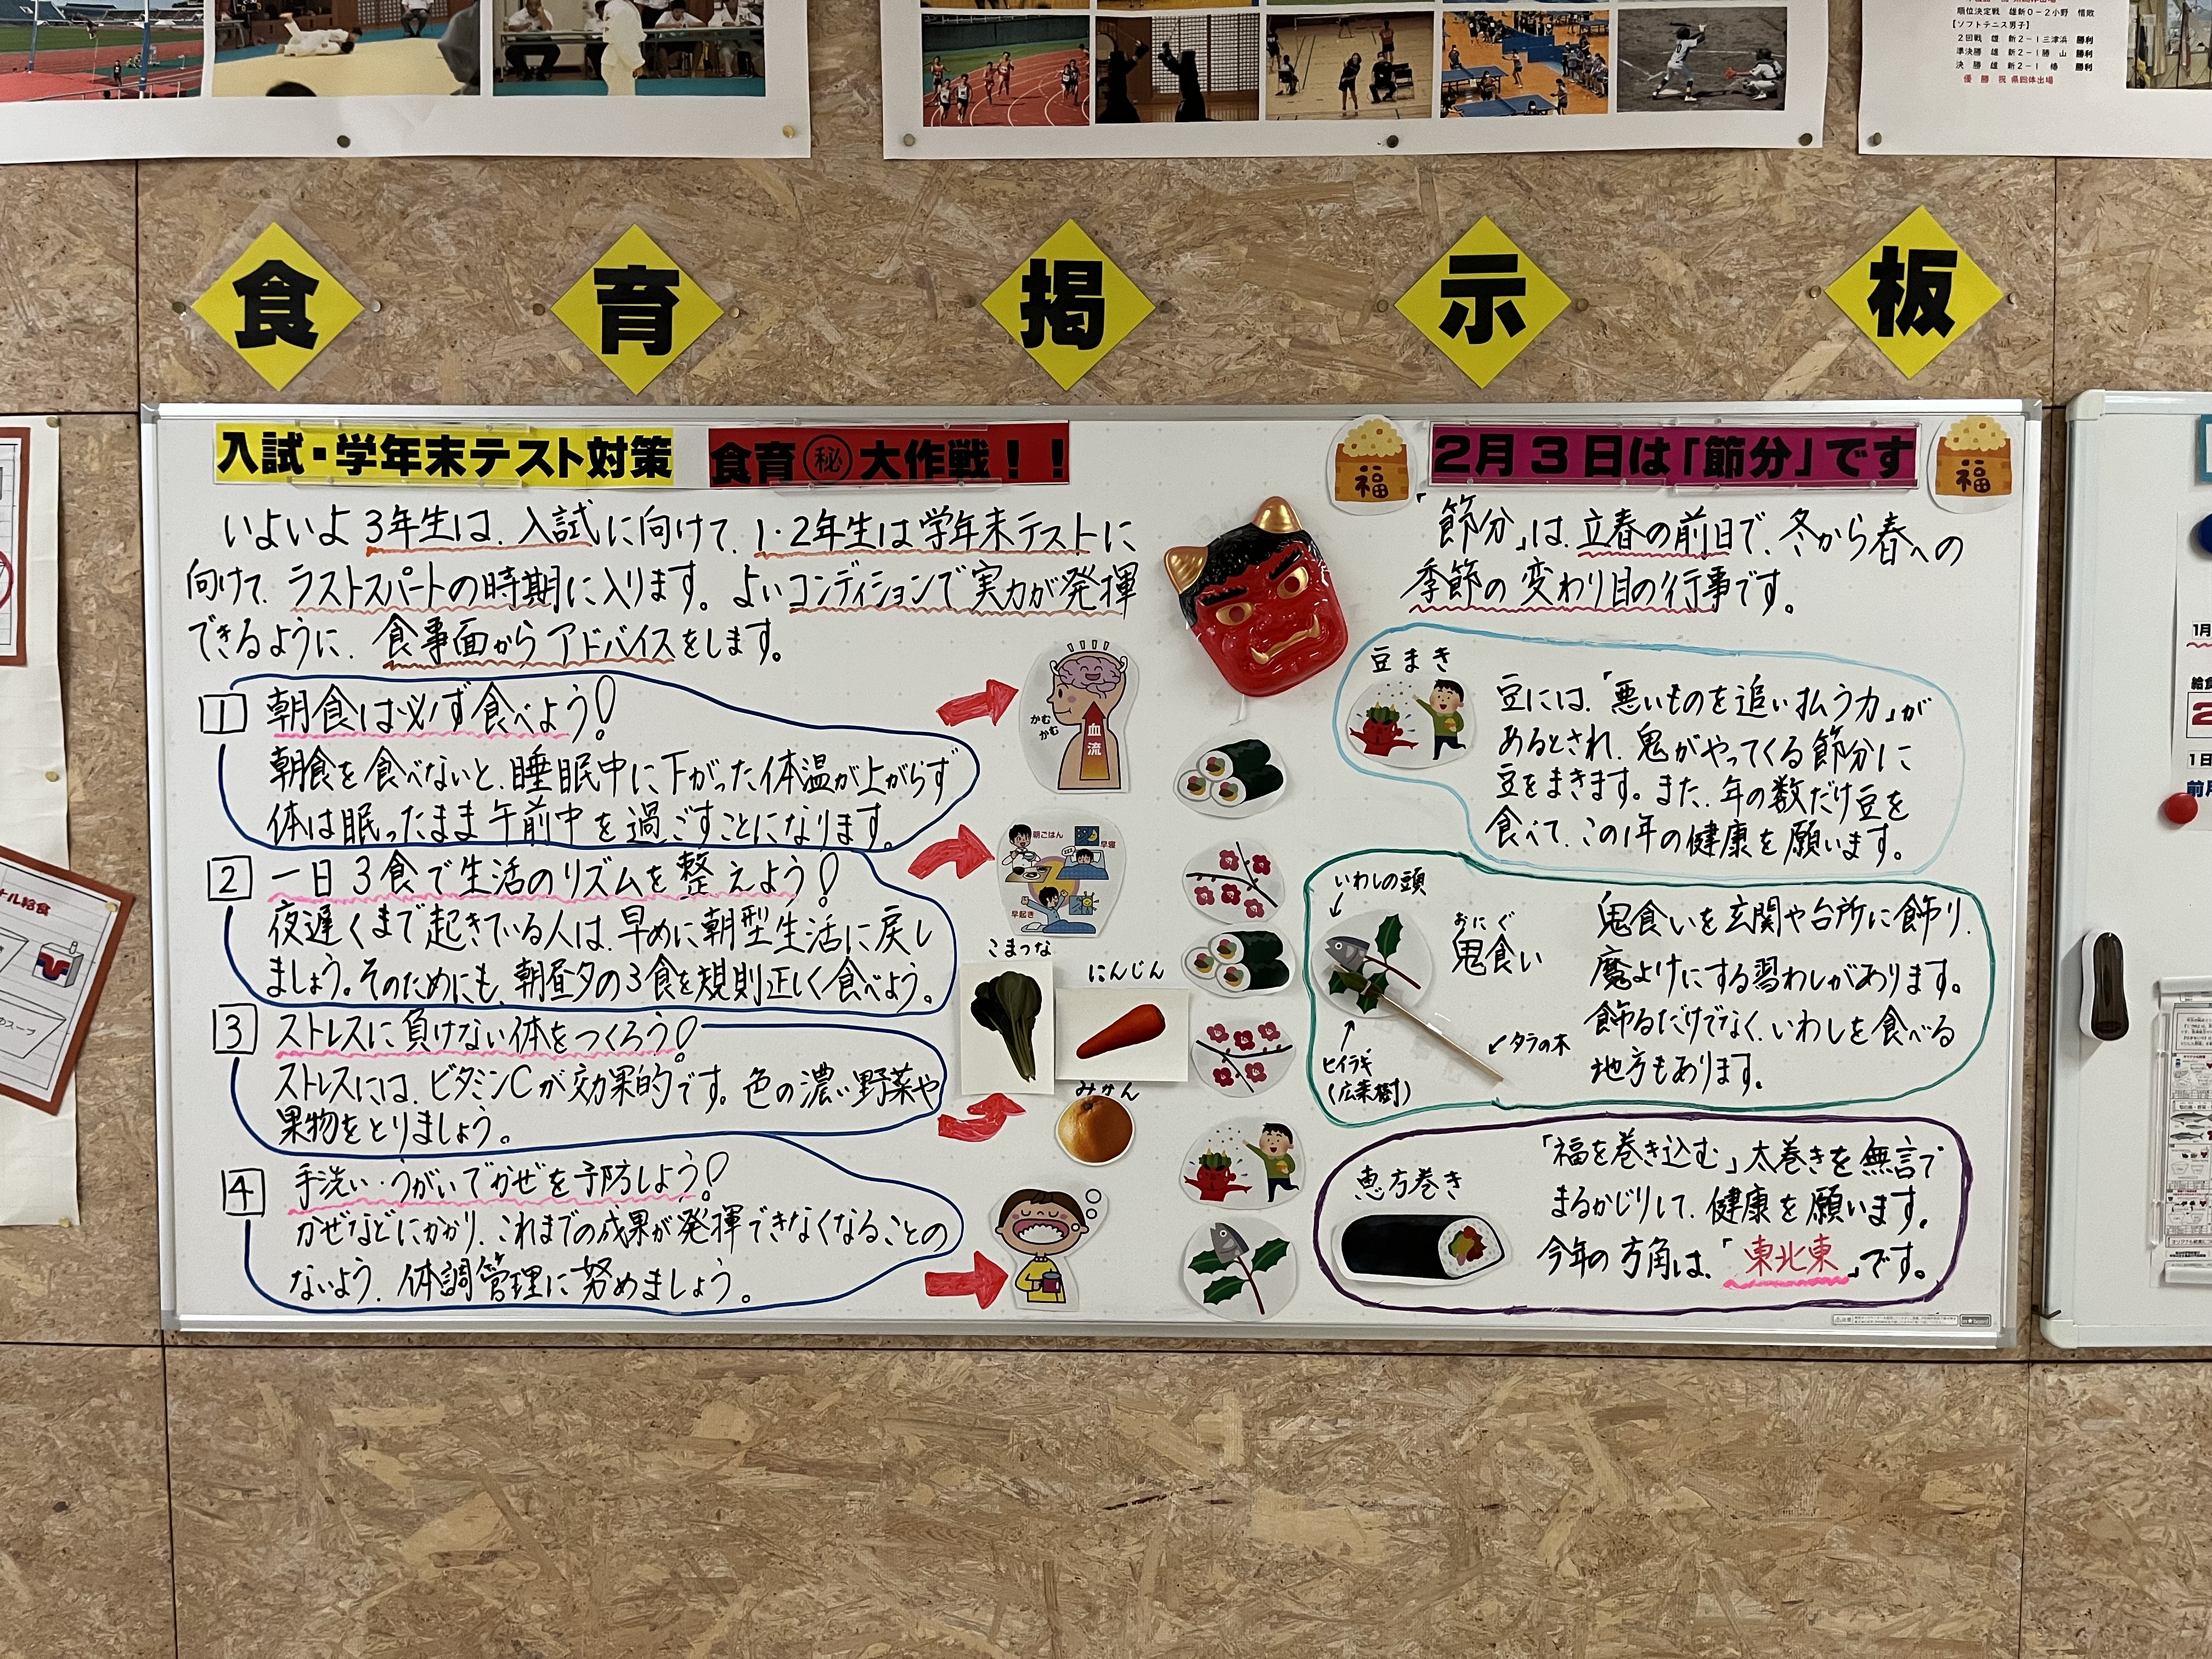 順位決定戦 雄新0-2小野 惜敗
【ソフトテニス男子】
2回戦 雄新2-1三津浜 勝利
準決勝 雄新2-1勝山 勝利
決勝 雄新2-1椿 勝利
優勝 祝 県総体出場
食育掲示板
入試・学年末テスト対策 食育㊙大作戦！！
いよいよ3年生は、入試に向けて、1・2年生は学年末テストに
向けて、ラストスパートの時期に入ります。よいコンディションで実力が発揮
できるように、食事面からアドバイスをします。
1 朝食は必ず食べよう！
朝食を食べないと、睡眠中に下がった体温が上がらず
体は眠ったまま午前中を過ごすことになります。
かむ
かむ
血流
2 一日3食で生活のリズムを整えよう！
夜遅くまで起きている人は、早めに朝型生活に戻し
ましょう。そのためにも、朝昼夕の3食を規則正しく食べよう。
朝ごはん
早寝
早起き
3 ストレスに負けない体をつくろう！
ストレスには、ビタミンCが効果的です。色の濃い野菜や
果物をとりましょう。
こまつな
にんじん
みかん
4 手洗い・うがいでかぜを予防しよう！
かぜなどにかかり、これまでの成果が発揮できなくなることの
ないよう、体調管理に努めましょう。
福
2月3日は「節分」です
福
「節分」は、立春の前日で、冬から春への
季節の変わり目の行事です。
豆まき
豆には、「悪いものを追い払う力」が
あるとされ、鬼がやってくる節分に
豆をまきます。また、年の数だけ豆を
食べて、この1年の健康を願います。
いわしの頭
おにぐ
鬼食い
ヒイラギ
(広葉樹)
タラの木
鬼食いを玄関や台所に飾り、
魔よけにする習わしがあります。
飾るだけでなく、いわしを食べる
地方もあります。
恵方巻き
「福を巻き込む」太巻きを無言で
まるかじりして、健康を願います。
今年の方角は、「東北東」です。
ナル給食
スープ
1月
給食
1日